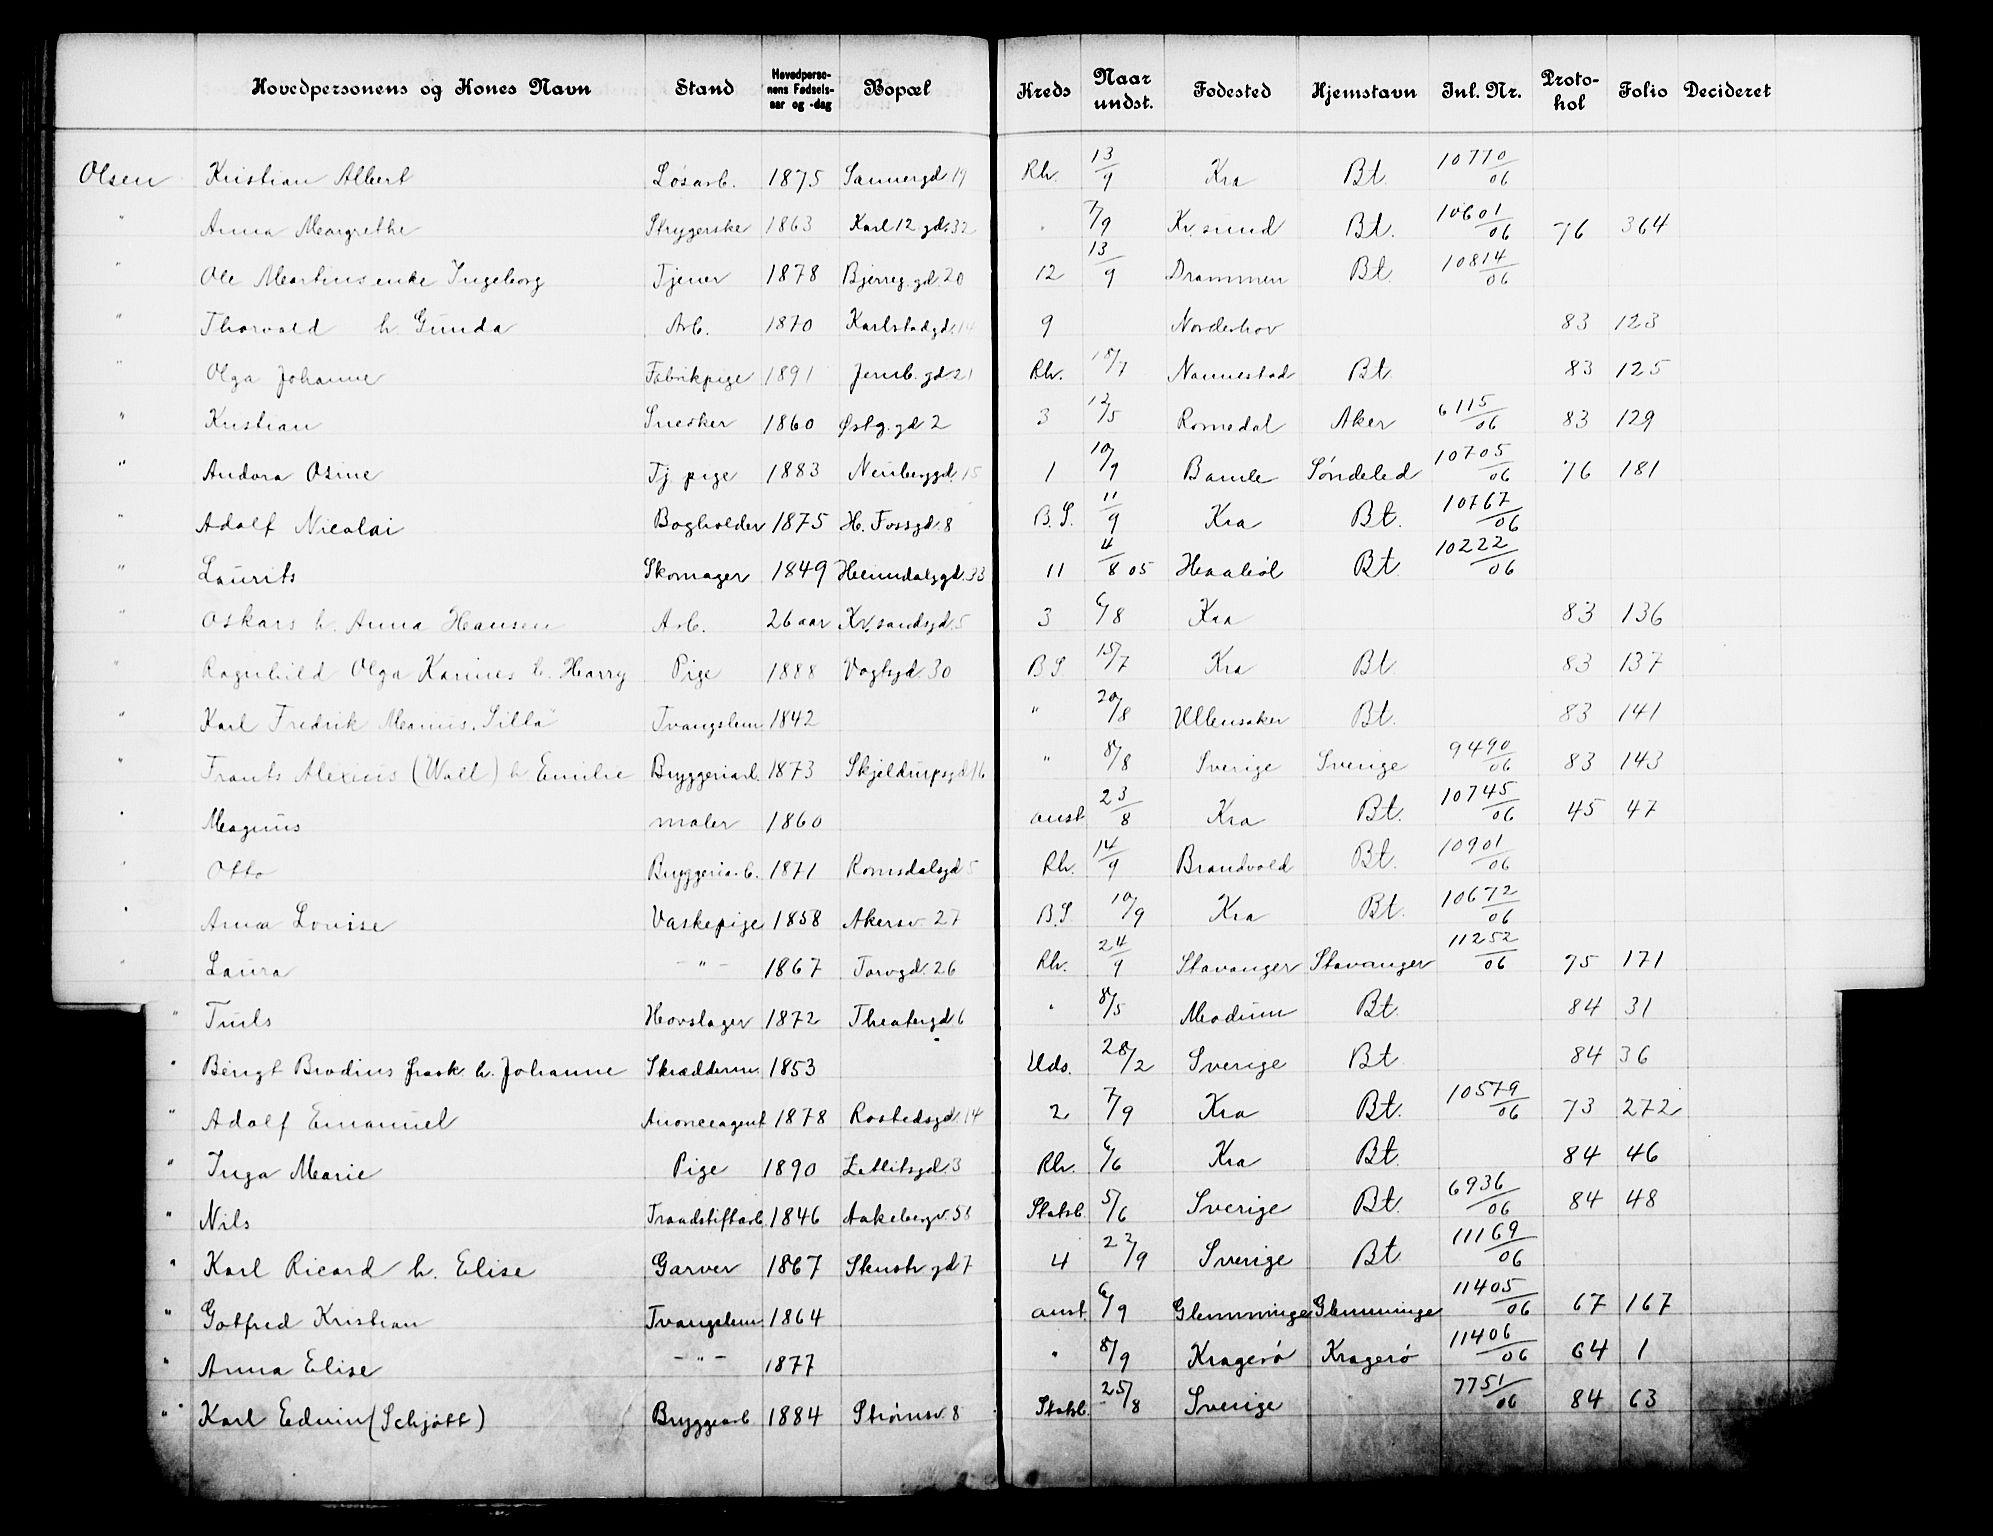 Hovedpersonens og Kones Navn | Stand | Hovedpersonens Fødselsaar og -dag | Bopæl | Kreds | Naar undst. | Fødested | Hjemstavn | Inl. Nr. | Protokol | Folio | Decideret
Olsen | Kristian Albert | Løsarb. | 1875 | Sannergd 19 | Rh. | 13/9 | Kra | Bt. | 10770/06
" | Anna Margrethe | Strygerske | 1863 | Karl 12 gd. 32 | " | 7/9 | Kr. sund | Bt. | 10601/06 | 76 | 364
" | Ole Martins enke Ingeborg | Tjener | 1878 | Bjerreg. gd. 20 | 12 | 13/9 | Drammen | Bt. | 10814/06
" | Thorvald h. Gunda | Arb. | 1870 | Karlstadgd. 14 | 9 | Norderhov | 83 | 123
" | Olga Johanne | Fabrikpige | 1891 | Jernb. gd 21 | Rh. | 18/7 | Nannestad | Bt. | 83 | 125
" | Kristian | Snedker | 1860 | Østg. gd 2 | 3 | 12/5 | Romedal | Aker | 6115/06 | 83 | 129
" | Andora Osine | Tj pige | 1883 | Neuberggd. 15 | 1 | 10/9 | Bamle | Søndeled | 10705/06 | 76 | 181
" | Adolf Nicolai | Bogholder | 1875 | H. Fossgd. 8 | B.S. | 11/9 | Kra | Bt. | 10767/06
" | Laurits | Skomager | 1849 | Heimdalsgd. 33 | 11 | 4/8 05 | Haabøl | Bt. | 10222/06
" | Oskars h. Anna Hansen | Arb. | 26 aar | Kr. sandsgd. 5 | 3 | 6/8 | Kra | 83 | 136
" | Ragnhild Olga Karines h. Harry | Pige | 1888 | Vogtsgd. 30 | B S | 15/7 | Kra | Bt. | 83 | 137
" | Karl Fredrik Marius. | Tvangslem | 1842 | " | 20/8 | Ullensaker | Bt. | 83 | 141
" | Frants Alexius (Wall) h Emilie | Bryggeriarb. | 1873 | Skjeldrupsgd 16 | " | 8/8 | Sverige | Sverige | 9490/06 | 83 | 143
" | Magnus | maler | 1860 | anst | 23/8 | Kra | Bt. | 10745/06 | 45 | 47
" | Otto | Bryggeriarb. | 1871 | Romsdalsgd 5 | Rh. | 14/9 | Brandvold | Bt. | 10901/06
" | Anna Lovise | Vaskepige | 1858 | Akersv. 27 | B.S | 10/9 | Kra | Bt. | 10672/06
" | Laura | - " - | 1867 | Torvgd. 26 | Rh. | 24/9 | Stavanger | Stavanger | 11252/06 | 75 | 171
" | Truls | Hovslager | 1872 | Theatergd. 6 | " | 8/5 | Modum | Bt. | 84 | 31
" | Bengt Brodins frask. h. Johanne | Skrædderm. | 1853 | Uds. | 28/2 | Sverige | Bt | 84 | 36
" | Adolf Emanuel | Anonceagent | 1878 | Rostedsgd. 14 | 2 | 7/9 | Kra | Bt. | 10579/06 | 73 | 272
" | Inga Marie | Pige | 1890 | | Rh. | 6/6 | Kra | Bt. | 84 | 46
" | Nils | Traadstiftarb. | 1846 | Aakebergv. 58 | Statsb. | 5/6 | Sverige | Bt. | 6936/06 | 84 | 48
" | Karl Ricard h. Elise | Garver | 1867 | Stenstr gd 7 | 4 | 22/9 | Sverige | Bt. | 11169/06
" | Gotfred Kristian | Tvangslem | 1864 | anst. | 6/9 | Glemminge | Glemminge | 11405/06 | 67 | 167
" | Anna Elise | - " - | 1877 | " | 8/9 | Kragerø | Kragerø | 11406/06 | 64 | 1
" | Karl Edvin (Schjøtt) | Bryggearb | 1884 | Strømsv. 8 | Statsb. | 25/8 | Sverige | 7751/06 | 84 | 63